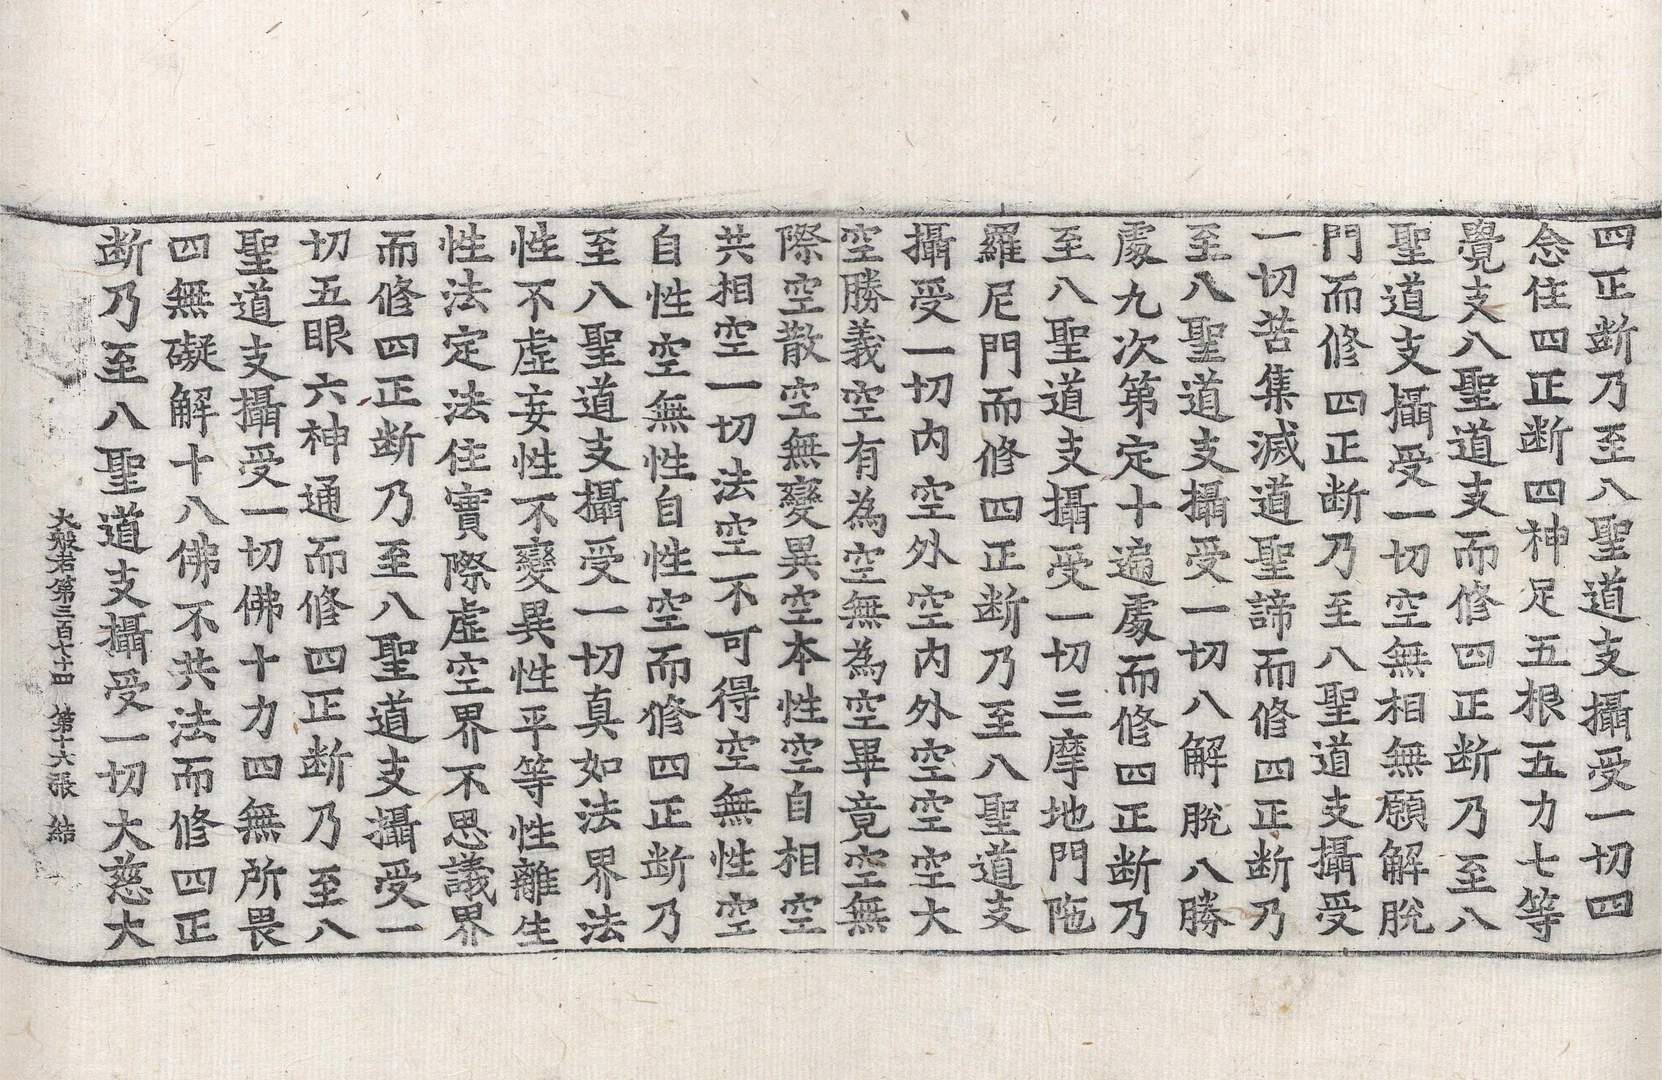 四正断乃至八聖道支攝受一切四
念住四正断四神足五根五力七等
覺支八聖道支而修四正断乃至八
聖道支攝受一切空無相無願解脫
門而修四正断乃至八聖道支攝受
一切苦集滅道聖諦而修四正断乃
至八聖道支攝受一切八解脫八勝
處九次第定十遍處而修四正断乃
至八聖道支攝受一切三摩地門陁
羅尼門而修四正断乃至八聖道支
攝受一切內空外空內外空空空大
空勝義空有為空無為空畢竟空無
際空散空無變異空本性空自相空
共相空一切法空不可得空無性空
自性空無性自性空而修四正断乃
至八聖道支攝受一切真如法界法
性不虛妄性不變異性平等性離生
性法定法住實際虛空界不思議界
而修四正断乃至八聖道支攝受一
切五眼六神通而修四正断乃至八
聖道支攝受一切佛十力四無所畏
四無礙解十八佛不共法而修四正
断乃至八聖道支攝受一切大慈大
大般若第三百七十四 第十六張 結